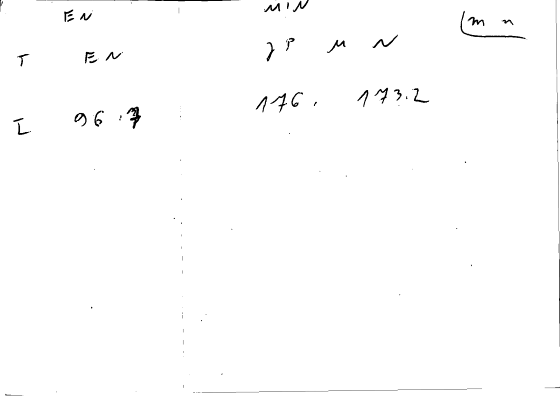 EN MIN (m n
T EN JP M N
I 96.7 176. 173.2